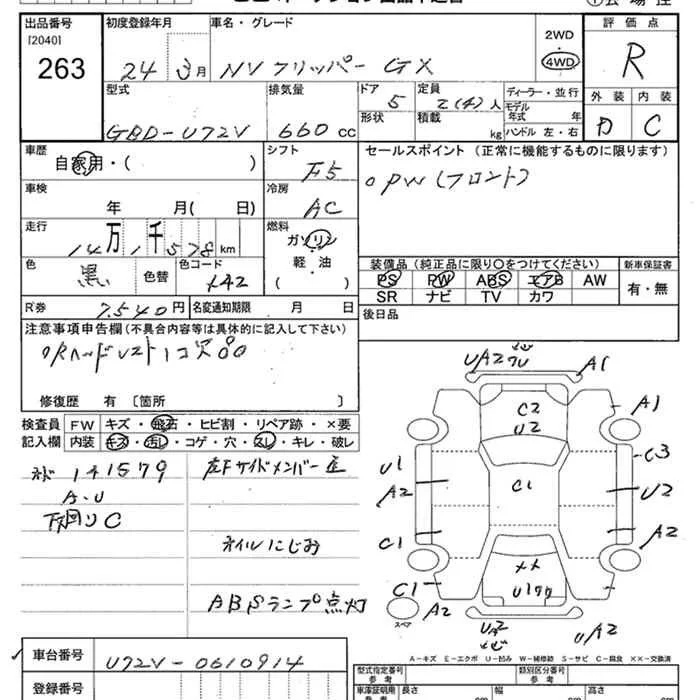 出品番号
[2040]
263
初度登録年月
24 3月
車名・グレード
NVクリッパー GX
2WD
・
4WD
評価点
R
外装 内装
D C
型式
GBD-U72V
排気量
660cc
ドア
5
形状
定員
2(4)人
積載
kg
ディーラー・並行
モデル年式 年
ハンドル 左・右
車歴
自家用・( )
シフト
F5
セールスポイント (正常に機能するものに限ります)
○PW(フロント)
車検
年 月( 日)
冷房
AC
走行
14万1千578km
燃料
ガソリン
軽・油
( )
色
黒
色替
色コード
X42
装備品 (純正品に限り○をつけてください)
PS PW ABS エアB AW
SR ナビ TV カワ
新車保証書
有・無
R券
7,540円
名変通知期限 月 日
後日品
注意事項申告欄(不具合内容等は具体的に記入して下さい)
修復歴 有 [箇所 ]
検査員記入欄
FW キズ・飛石・ヒビ割・リペア跡・×要
内装 キズ・汚れ・コゲ・穴・スレ・キレ・破レ
141579
A・U
下廻りC
左Fサイドメンバー
オイルにじみ
ABSランプ点灯
UA2
A1
A1
C2
U2
C3
U1
A2
C1
U2
C1
A2
C1
A2
スペア
UA2
UA2
A-キズ E-エクボ U-凹み W-補修跡 S-サビ C-腐食 ××-交換済
車台番号
U72V-0610914
登録番号
型式指定番号
参考
類別区分番号
参考
車庫証明用
参考
長さ
幅
高さ